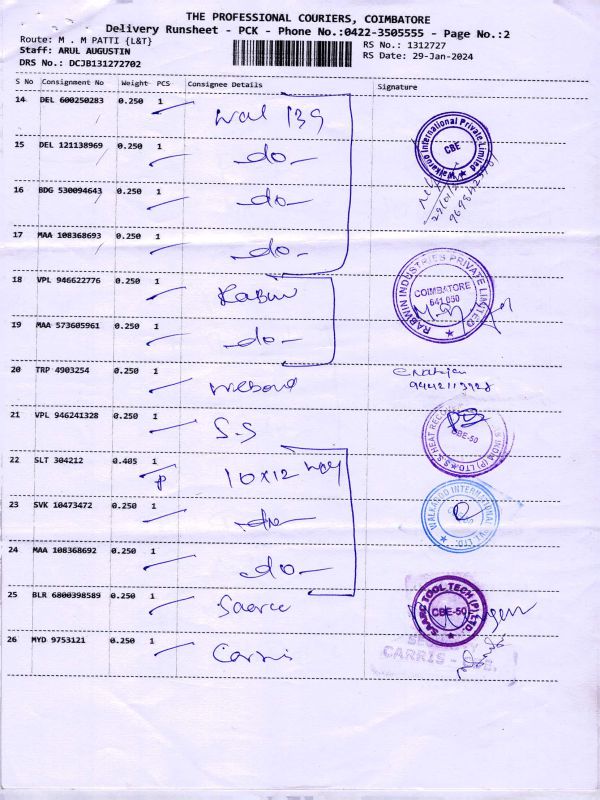 THE PROFESSIONAL COURIERS, COIMBATORE
Delivery Runsheet - PCK - Phone No.:0422-3505555 - Page No.:2
Route: M . M PATTI {L&T}
RS No.: 1312727
Staff: ARUL AUGUSTIN
RS Date: 29-Jan-2024
DRS No.: DCJB131272702
S No Consignment No Weight PCS Consignee Details Signature
14 DEL 600250283 0.250 1
Wal 139
15 DEL 121138969 0.250 1
-do-
Walkaroo International Private Limited
CBE
16 BDG 530094643 0.250 1
-do-
17 MAA 108368693 0.250 1
-do-
18 VPL 946622776 0.250 1
RABWIN INDUSTRIES PRIVATE LIMITED
COIMBATORE
641 050
19 MAA 573605961 0.250 1
-do-
20 TRP 4903254 0.250 1
21 VPL 946241328 0.250 1
S.S
CBE-50
22 SLT 304212 0.405 1
10x12
23 SVK 10473472 0.250 1
WALKAROO INTERNATIONAL
24 MAA 108368692 0.250 1
-do-
25 BLR 6800398589 0.250 1
Saarc
SAARC TOOL TECH (P) LTD
CBE-50
26 MYD 9753121 0.250 1
Carris
CARRIS - CBE.